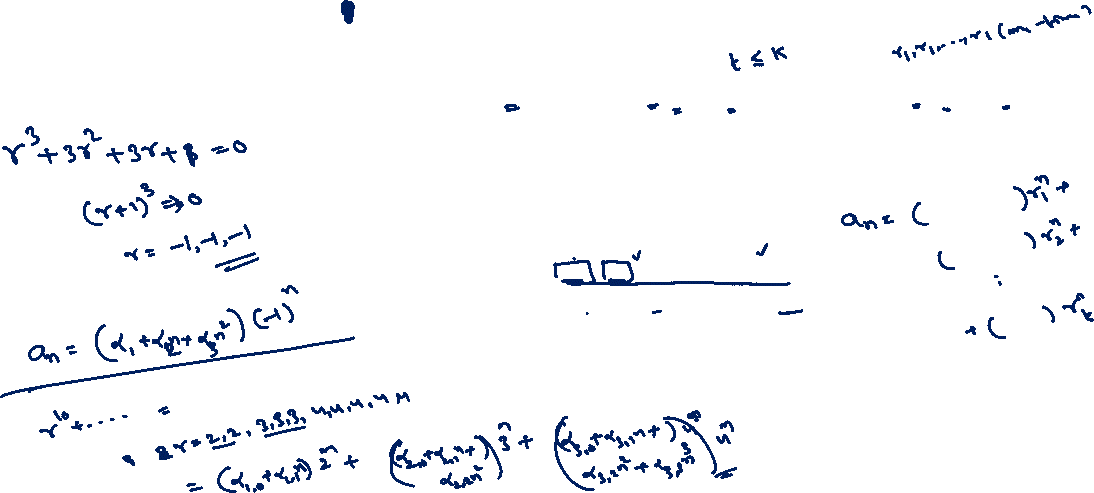 t ≤ k
r₁, r₁, ..., r₁ (m₁ - times)
r³ + 3r² + 3r + 1 = 0
(r+1)³ ⇒ 0
r = -1, -1, -1
aₙ = (α₁ + α₂n + α₃n²) (-1)ⁿ
aₙ = ( ) r₁ⁿ +
( ) r₂ⁿ +
:
+ ( ) rₜⁿ
r¹⁰ + .... =
r = 2, 2, 3, 3, 3, 4, 4, 4, 4
= (α₁,₀ + α₁,₁n) 2ⁿ + (α₂,₀ + α₂,₁n + α₂,₂n²) 3ⁿ + (α₃,₀ + α₃,₁n + α₃,₂n² + α₃,₃n³) 4ⁿ